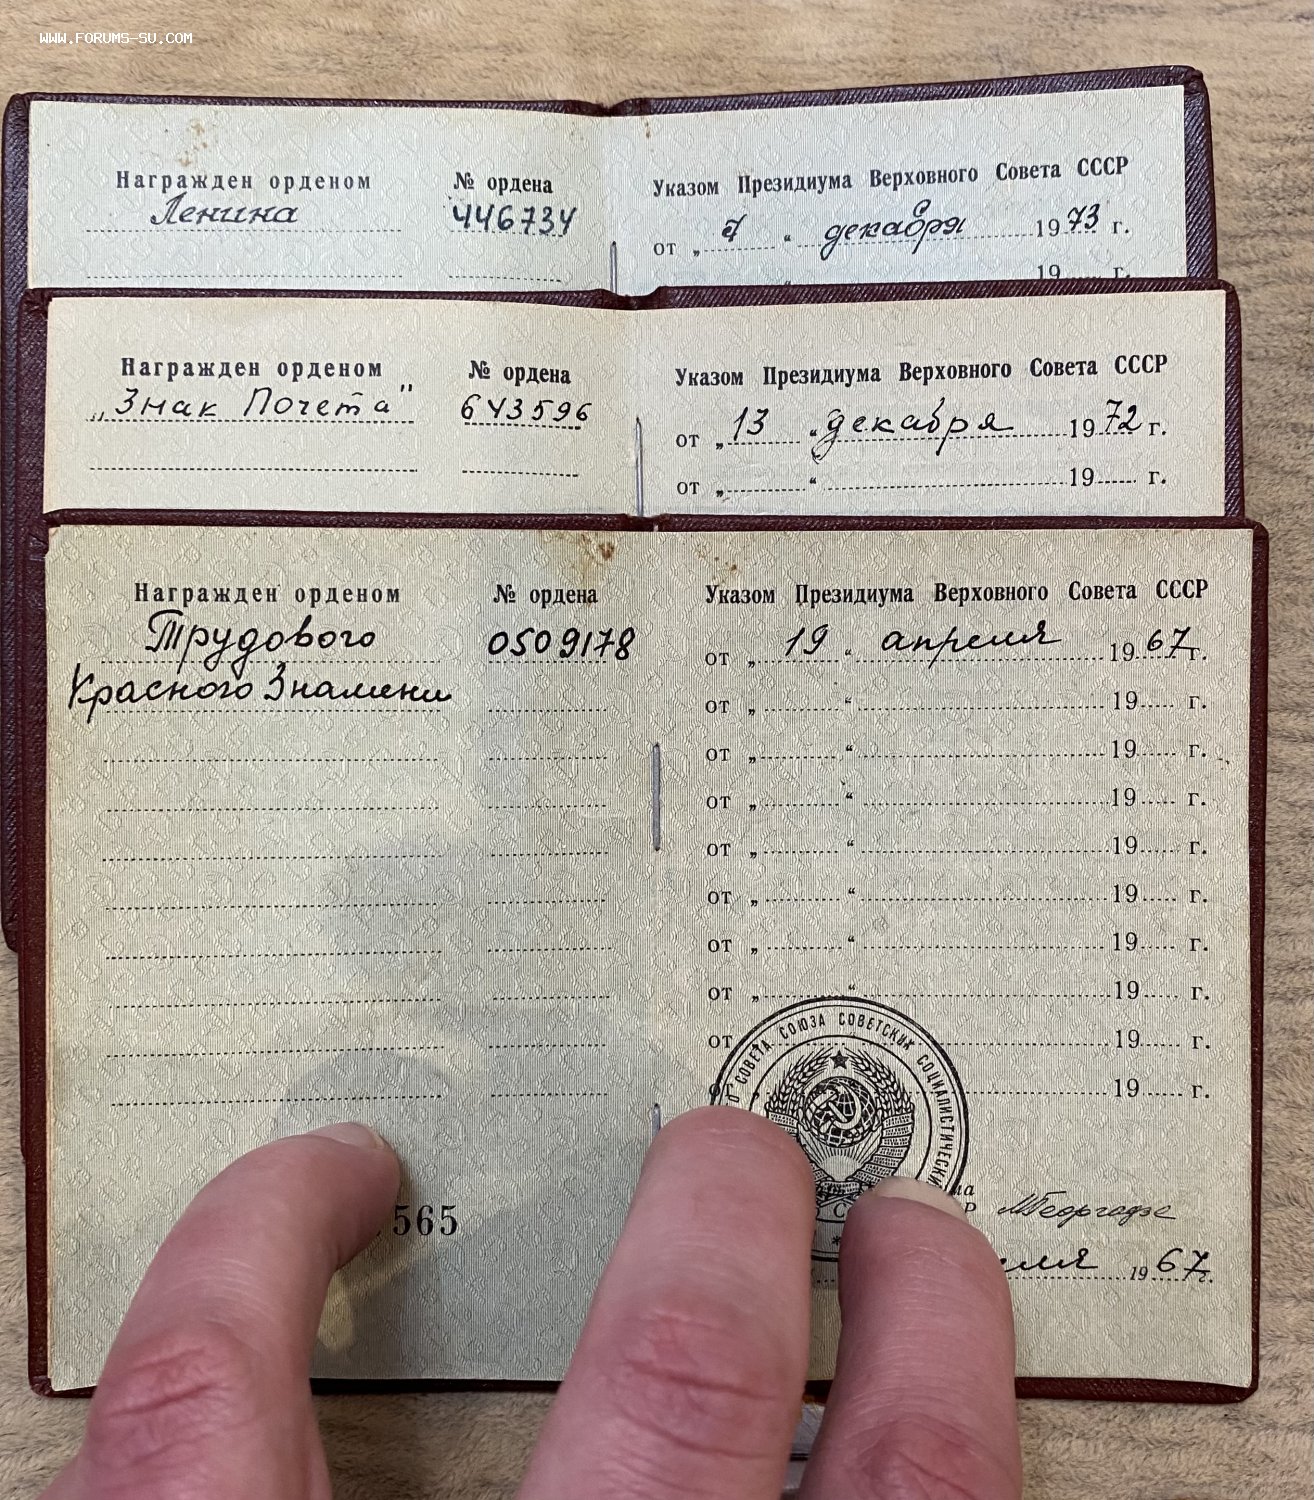 WWW.FORUMS-SU.COM
Награжден орденом № ордена Указом Президиума Верховного Совета СССР
Ленина 446734 от „ 7 “ декабря 1973 г.
19 г.
Награжден орденом № ордена Указом Президиума Верховного Совета СССР
„Знак Почета" 643596 от „ 13 “ декабря 1972 г.
от „ “ 19 г.
Награжден орденом № ордена Указом Президиума Верховного Совета СССР
Трудового 0509178 от „ 19 “ апреля 1967 г.
Красного Знамени от „ “ 19 г.
от „ “ 19 г.
от „ “ 19 г.
от „ “ 19 г.
от „ “ 19 г.
от „ “ 19 г.
от „ “ 19 г.
от 19 г.
от 19 г.
СОВЕТА СОЮЗА СОВЕТСКИХ СОЦИАЛИСТИЧЕСКИ
565 МГеоргадзе
1967 г.